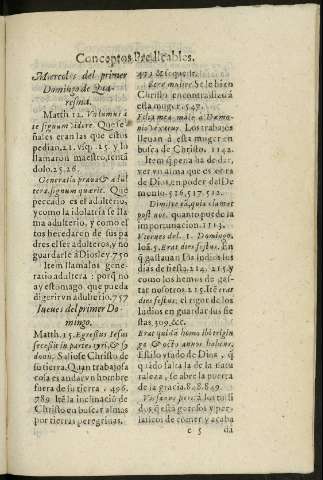 Conceptos Predicables.
Miercoles del primer
Domingo de Qua-
resma.
Matth. 12. Volumus a
te signum videre. Que se-
ñales eran las que estos
pedian, 21. vsq; 25. y lo
llamaron maestro, tentã
dolo. 25. 26.
Generatio praua & adul
tera, signum quærit. Que
peccado es el adulterio,
y como la idolatria se lla
ma adulterio, y como es
tos heredaron de sus pa
dres el ser adulteros, y no
guardarle à Dios ley. 750
Item llamalos gene
ratio adultera: porq̃ no
ay estomago que pueda
digerir vn adulterio. 757
Iueues del primer Do-
mingo.
Matth. 15. Egressus Iesus
secessit in partes tyri, & sy
donis. Saliose Christo de
su tierra. Quan trabajosa
cosa es andar vn hombre
fuera de su tierra. 496.
789. Itẽ la inclinacion de
Christo en buscar almas
por tierras peregrinas.
472 & sequẽtib.
Ecce mulier. Sele bien
Christo
esta muger. 547.
Filia mea male a Dæmo-
nio vexatur. Los trabajos
lleuan à esta muger en
busca de Christo. 1142.
Item q̃ pena ha de dar,
ver vn alma que es erra
de Dios, en poder del De
monio. 516. 517. 512.
Dimitte eã, quia clamat
post nos. quanto puede la
importunacion. 1113.
Viernes del. 1. Domingo.
Ioã. 5. Erat dies festus. En
q̃ gastauan los Iudios los
dias de fiesta, 214. 215. y
como los hemos de gas-
tar nosotros. 215. Itẽ erat
dies festus: el rigor de los
Iudios en guardar sus fie
stas, 309. &c.
Erat quidã homo ibi trigin
ta & octo annos habens.
Estilo vsado de Dios, q̃
quãdo falta la de la natu
raleza, se abre la puerta
de la gracia. 848. 849.
Vis sanus fieri. à los tuli
dos, q̃ està gotosos y per-
laticos de comer, y acaba
c 5 da